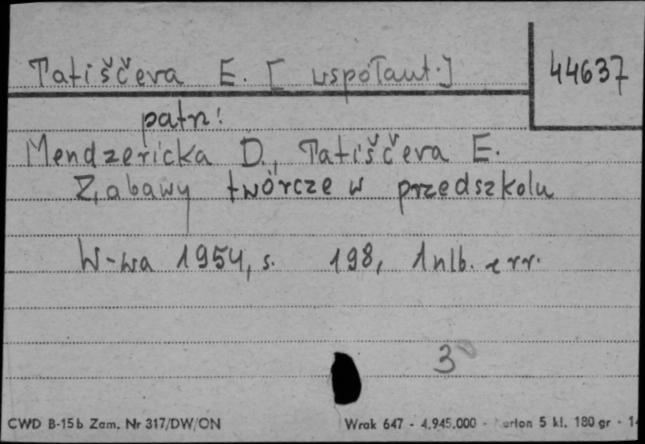 Tatiščeva E. [współaut.] 44637
patrz:
Mendzericka D., Tatiščeva E.
Zabawy twórcze w przedszkolu
W-wa 1954, s. 198, 1 nlb. err.
3
CWD B-15b Zam. Nr 317/DW/ON Wrak 647 - 4.945.000 - arton 5 kl. 180 gr - 1